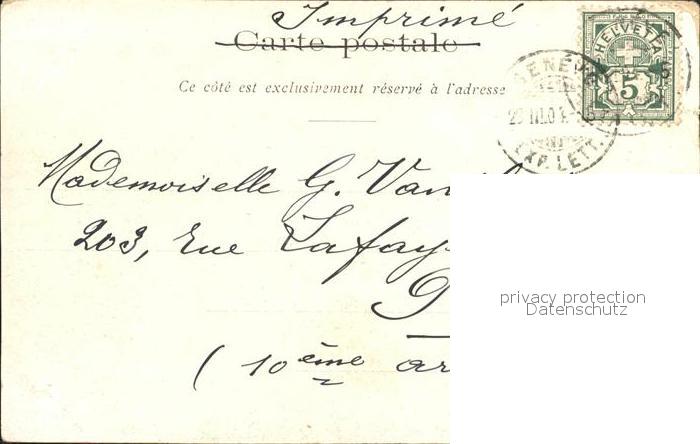 Imprimé
Carte postale
Ce côté est exclusivement réservé à l'adresse
HELVETIA
5
GENÈVE
EXP. LETT.
Mademoiselle G. Van
203, Rue Lafay
(10ème ar
privacy protection
Datenschutz